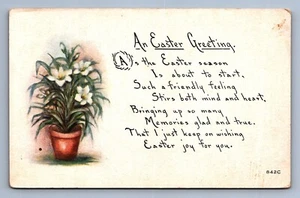 An Easter Greeting.
As the Easter season
Is about to start,
Such a friendly feeling
Stirs both mind and heart,
Bringing up so many
Memories glad and true.
That I just keep on wishing
Easter joy for you.
842C